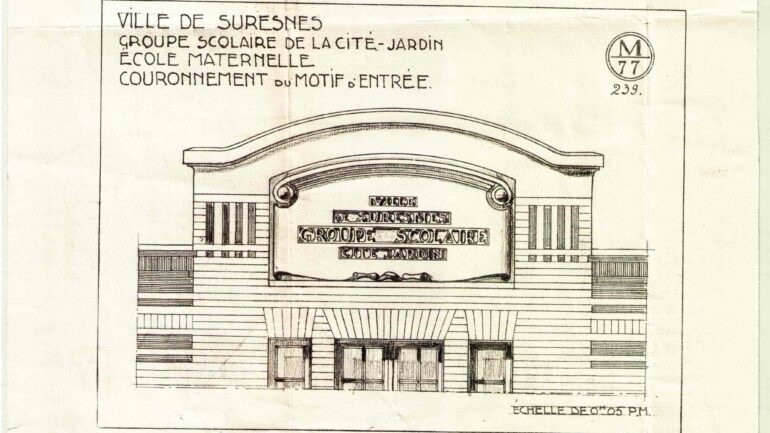 VILLE DE SURESNES
GROUPE SCOLAIRE DE LA CITÉ-JARDIN
ÉCOLE MATERNELLE
COURONNEMENT DU MOTIF D'ENTRÉE.
M
77
239.
VILLE
DE SURESNES
GROUPE SCOLAIRE
CITÉ JARDIN
ÉCHELLE DE 0ᵐ05 P.M.